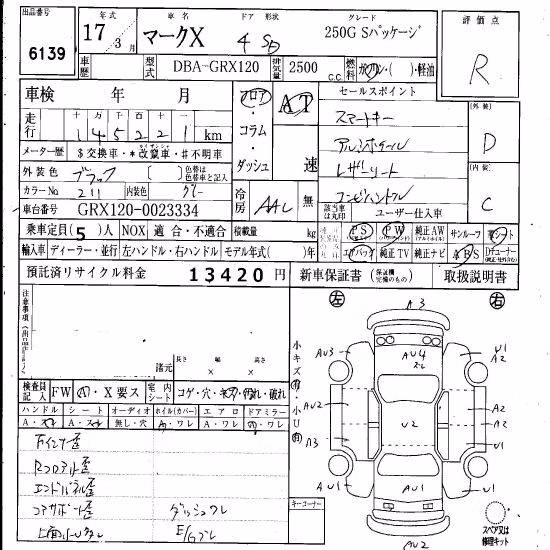 出品番号
6139
年式 車名 ドア 形状 グレード
17 3月 マークX 4 SD 250G Sパッケージ
車歴 型式 DBA-GRX120 排気量 2500 C.C 燃料 ガソリン・( )・軽油
評価点
R
外装 D
内装 C
車検 年 月
フロア・コラム・ダッシュ
AT 速
セールスポイント
走行 十万 万 千 百 十 一
1 4 5 2 2 1 km
スマートキー
アルミホイール
レザーシート
コンビハンドル
メーター歴 $交換車・*改竄車・#不明車
外装色 ブラック 色替は色替車と記入
カラーNo 211 内装色 グレー
冷房 AAC 無
該当車は丸印 ユーザー仕入車
車台番号 GRX120-0023334
乗車定員(5)人 NOX 適合・不適合 積載量 kg
PS PW 純正AW サンルーフ 革シート
輸入車 ディーラー・並行 左ハンドル・右ハンドル モデル年式( )年
エアバッグ 純正TV 純正ナビ ABS Dチューナー
預託済リサイクル料金 13420円 新車保証書 取扱説明書
注意事項
諸元 長さ × 幅 × 高さ
検査員記入 FW A・X要ス 室内シート コゲ・穴・キズ・汚れ・破れ
ハンドル シート オーディオ ホイル(カバー) エアロ ドアミラー
A・スレ A・スレ 無し・穴 A・ワレ A・ワレ A・ワレ
Rインナー歪
Rフロアー歪
エンドパネル歪
コアサポート歪 ダッシュワレ
E/Gブレ
小キズ有・小U有
キーコーナー
左 右
A3
AU3 AU4 U1 A2
スレ
AU2 U2 A2
A3 U1
AU1 AU1 U1
AU2
スペア又は修理キット